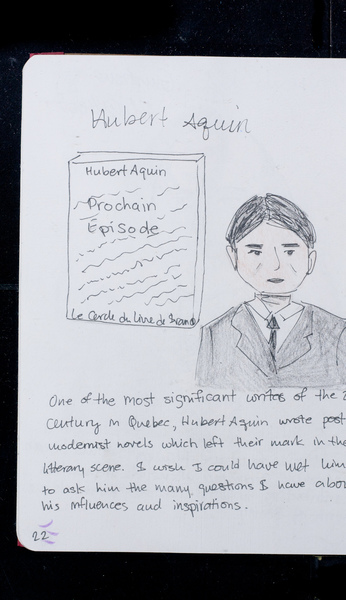 Hubert Aquin
Hubert Aquin
Prochain
Épisode
Le Cercle du Livre de France
One of the most significant writers of the 2
century in Quebec, Hubert Aquin wrote post
modernist novels which left their mark in the
literary scene. I wish I could have met him
to ask him the many questions I have abou
his influences and inspirations.
22